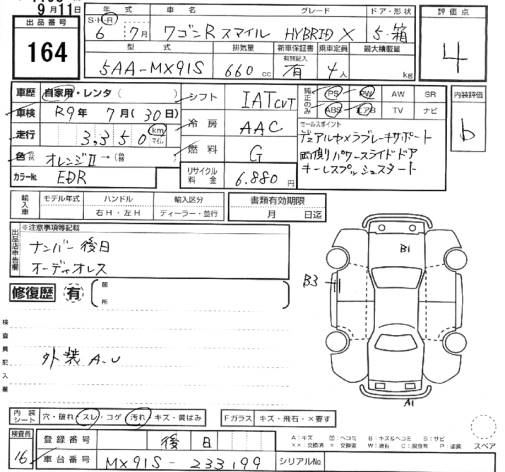 9月11日
出品番号
164
年式 車名 グレード ドア・形状
S・H・R 6年 7月 ワゴンR スマイル HYBRID X 5・箱
型式 排気量 新車保証書 乗車定員 最大積載量
有効記入
5AA-MX91S 660cc 有 4人 kg
評価点
4
車歴 自家用・レンタ( )
車検 R9年 7月(30日)
走行 3,350 km マイル
色 オレンジII→(
カラーNo. EDR
シフト IAT CVT
冷房 AAC
燃料 G
リサイクル料金 6,880円
純正のみ PS PW AW SR
ABS エアB TV ナビ
セールスポイント
デュアルカメラブレーキサポート
両側パワースライドドア
キーレスプッシュスタート
内装評価
b
輸入車 モデル年式 ハンドル 輸入区分
年 右H・左H ディーラー・並行
書類有効期限
月 日迄
出品店申告欄
※注意事項等記載
ナンバー後日
オーディオレス
修復歴 有 (箇所
検査員記入欄
外装 A.U
B1
B3
A1
内装シート 穴・破れ スレ・コゲ 汚れ キズ・黄ばみ
Fガラス キズ・飛石・×要す
スペア
検査員
16
登録番号 後日
車台番号 MX91S-233199
シリアルNo
A:キズ 凹:ヘコミ B:キズ&ヘコミ S:サビ